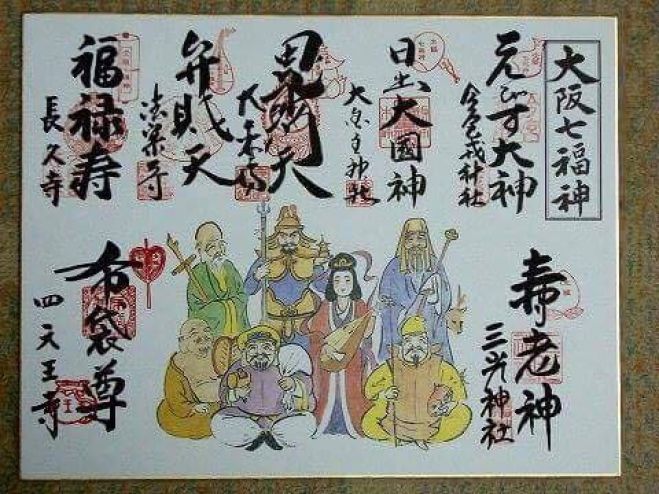 大阪七福神
えびす大神
今宮戎神社
日出大國神
大国主神社
毘沙門天
大乗坊
弁財天
法案寺
福禄寿
長久寺
寿老神
三光神社
布袋尊
四天王寺